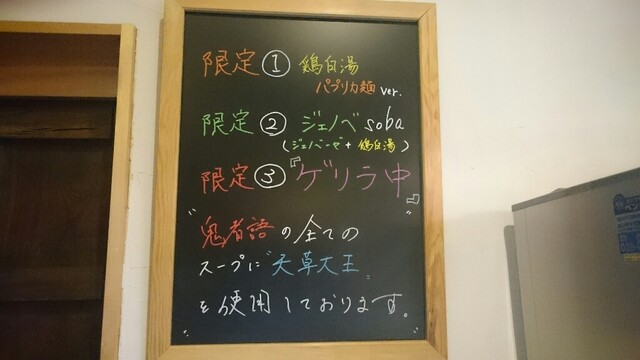 限定① 鶏白湯
パプリカ麺 ver.
限定② ジェノベ soba
(ジェノベーゼ + 鶏白湯)
限定③ 『ゲリラ中』
"鬼者語の全ての
スープに"天草大王"
を使用しております。"